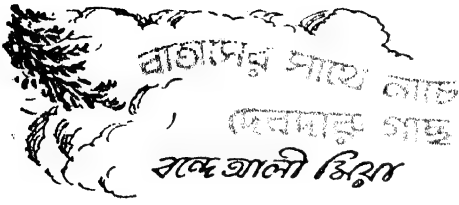 বাতাসের সাথে নাচে
দেবদারু গাছ
বন্দে আলী মিয়া